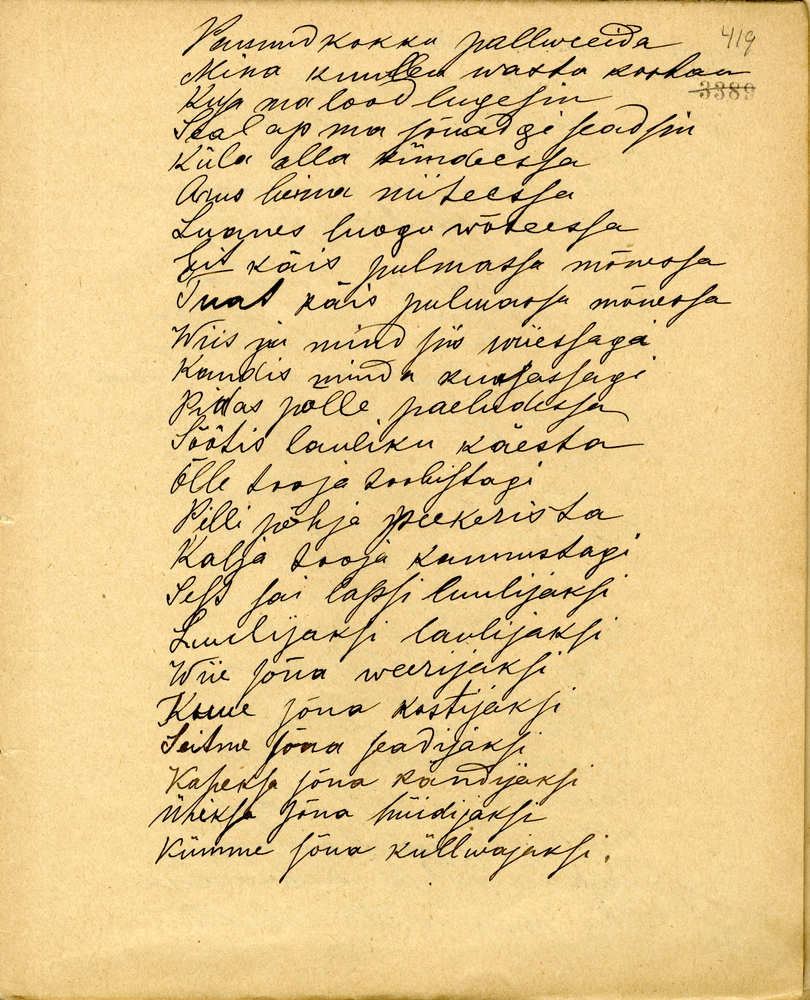 419
3389
Pannud kokku pallweeida
Mina kuulen wasta kostan
Kuja ma lood lugesin
Seal ap ma jõuadgi seadsin
Küla alla kündeessa
Arus heina niiteessa
Luanes luogu wõteessa
Eit käis pulmassa mõnessa
Tuat käis pulmassa mõnessa
Wiis ju mind siis wiiessagi
Kandis minda
Pidas põlle paeludessa
Söötis lauliku käesta
Õlle tooja toobistagi
Pilli põhja peekerista
Kalja tooja kannustagi
Sest sai lapsi luulijaksi
Luulijaksi laulijaksi
Wiie sõna weerijaksi
Kuue sõna kostijaksi
Seitme sõna seadijaksi
Kaheksa sõna kändijaksi
Üheksa sõna hüidijaksi
Kümme sõna küllwajaksi.